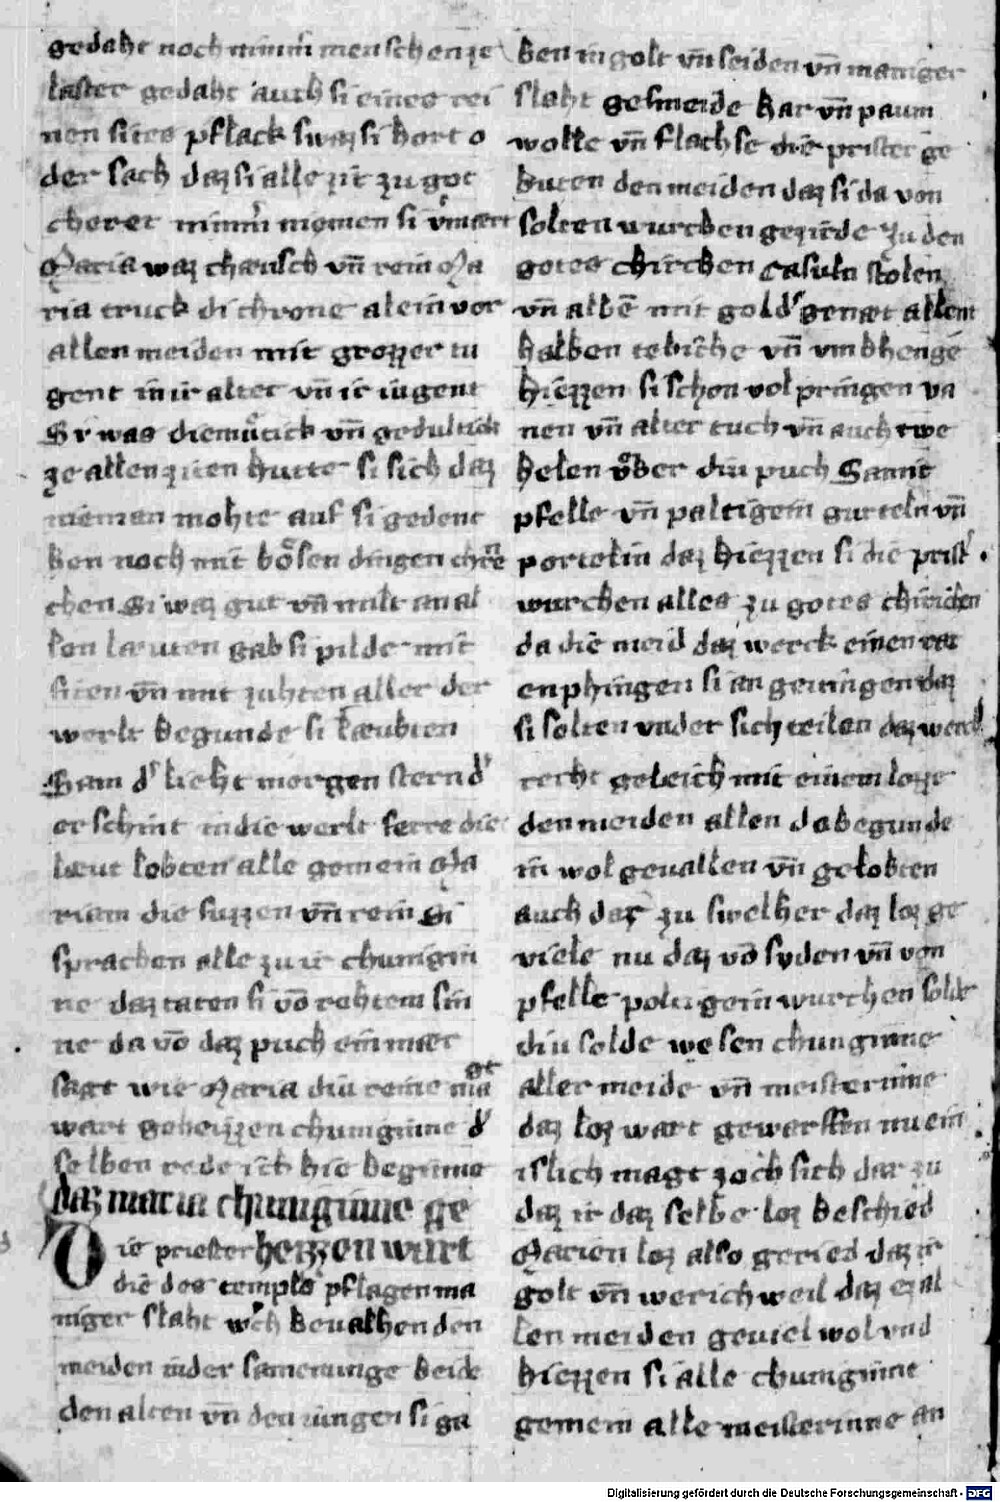 gedaht noch nimm̄ menschen ze
laster gedaht auch si eines rei
nen sites pflack swaz si hort o
der sach daz si alle zit zu got
cheret nimm̄ niemen si
Maria waz chæusch vn̄ rein Ma
ria truck di chrone alein vor
allen meiden mit grozzer tu
gent in ir alter vn̄ ir iugent
Si was diemuͤtick vn̄ gedultick
ze allen ziten hutte si sich daz
nieman mohte auf si geden
ken noch mit boͤsen dingen
chen Si waz gut vn̄ milt an al
len læuten gab si pilde mit
siten vn̄ mit zuhten aller der
werlt begunde si
Sam d' lieht morgen stern d'
er schint in die werlt ferre die
læut lobten alle gemein Ma
riam die suzzen vn̄ rein Si
sprachen alle zu ir chunigin
ne daz taten si vō rehtem sin
ne da vō daz puch ein mær
sagt wie Maria diu reine magt
wart geheizzen chuniginne d'
selben rede ich hie beginne
daz maria chuniginne ge
Die priester heizzen wart
die des templs pflagen ma
niger slaht w'ch beualhen den
meiden in der samenunge beide
den alten vn̄ den iungen si ga
ben in golt vn̄ seiden vn̄ maniger
slaht gesmeide har vn̄ paum
wolle vn̄ flachse die prister ge
buten den meiden daz si da von
solten wurcken gezirde zu den
gotes chirchen Casuln stolen
vn̄ albē mit gold' genæt allent
halben tebiche vn̄ vmbhenge
hiezzen si schon volpringen va
nen vn̄ alter tuch vn̄ auch twe
helen vͤber diu puch Samit
pfelle vn̄ paltigein gurteln vn̄
portelin daz hiezzen si die prist'
wurchen alles zu gotes chirichen
da die meid daz werck einen rat
enphingen si an geuingen daz
si solten vnder sich teilen daz werck
reht geleich mit einem lozze
den meiden allen da begunde
in wol geuallen vn̄ gelobten
auch daz zu swelher daz loz ge
viele nu daz vō syden vn̄ von
pfelle polugein wurchen solde
diu solde wesen chuniginne
aller meide vn̄ meisterinne
daz loz wart geworffen nu ein
islich magt zoch sich dar zu
daz ir daz selbe loz beschied
Marien loz also geried daz ir
golt vn̄ werich weil daz ez al
len meiden geuiel wol vnd
hiezzen si alle chuniginne
gemein alle meisterinne an
Digitalisierung gefördert durch die Deutsche Forschungsgemeinschaft - DFG